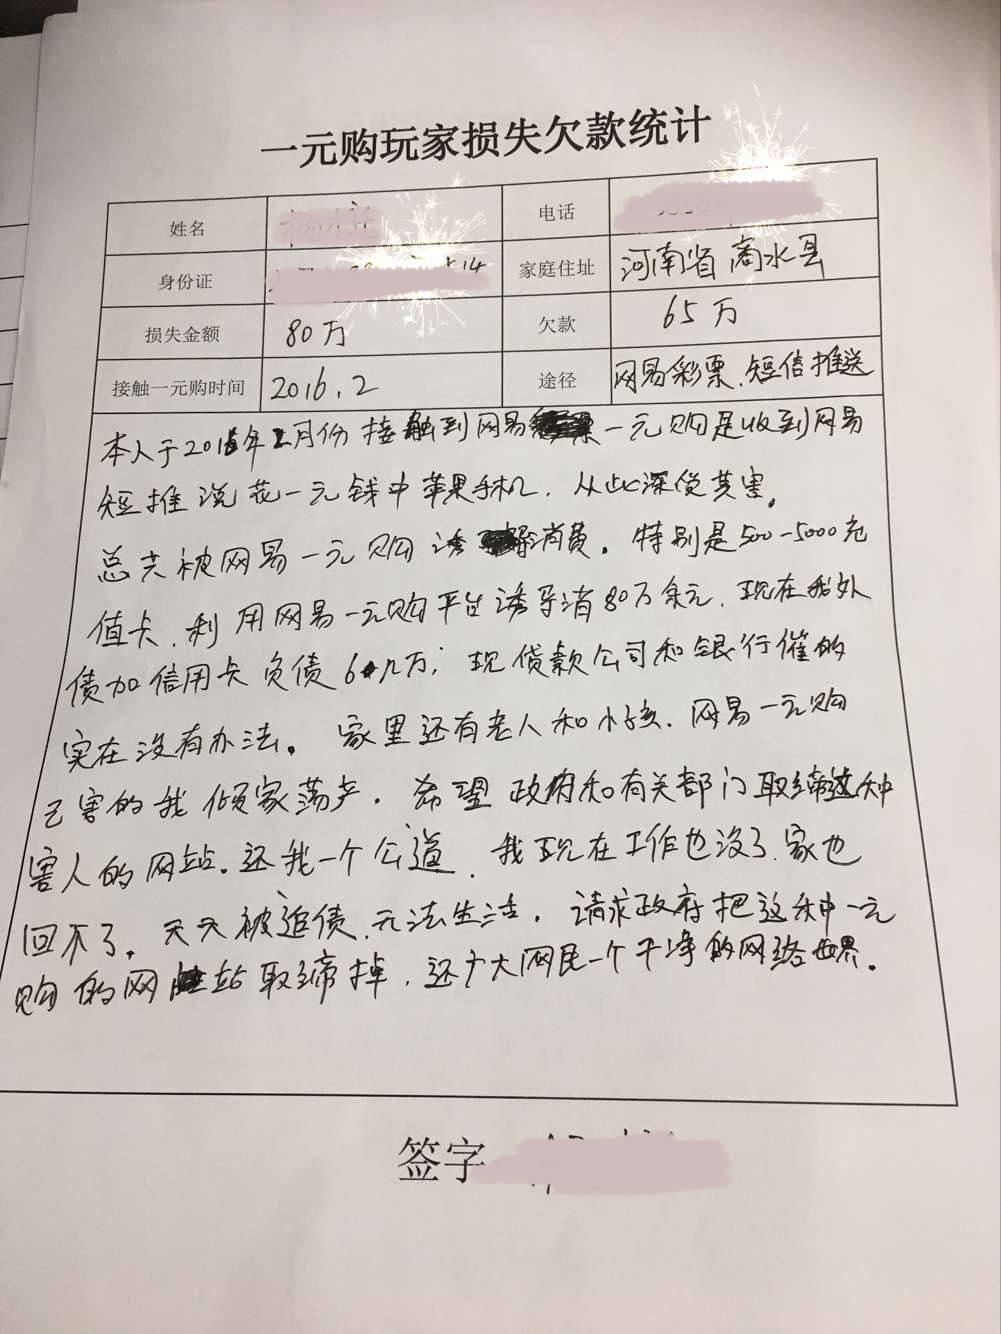 一元购玩家损失欠款统计
姓名 电话
身份证 14 家庭住址 河南省商水县
损失金额 80万 欠款 65万
接触一元购时间 2016.2 途径 网易彩票、短信推送
本人于2016年2月份接触到网易一元购是收到网易
短推说花一元钱中苹果手机，从此深受其害。
总共被网易一元购诱消费。特别是500-5000充
值卡、利用网易一元购平台诱导消80万余元、现在我外
债加信用卡负债6几万；现贷款公司和银行催的
实在没有办法。家里还有老人和小孩、网易一元购
己害的我倾家荡产。希望政府和有关部门取缔这种
害人的网站。还我一个公道、我现在工作也没了、家也
回不了。天天被追债、无法生活。请求政府把这种一元
购的网站取缔掉，还广大网民一个干净的网络世界。
签字